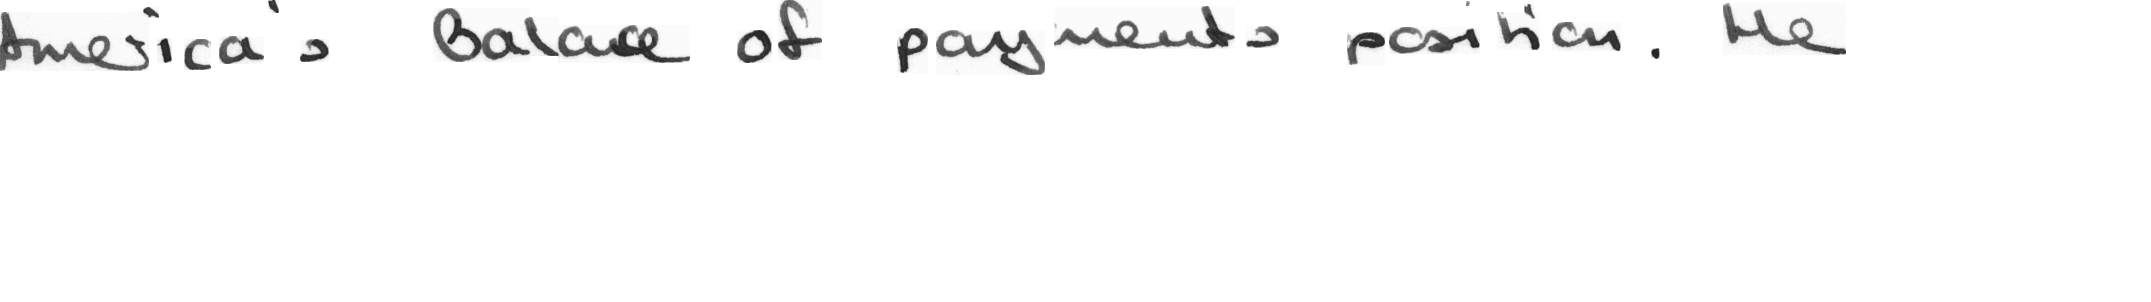 America's Balance of payments position. He